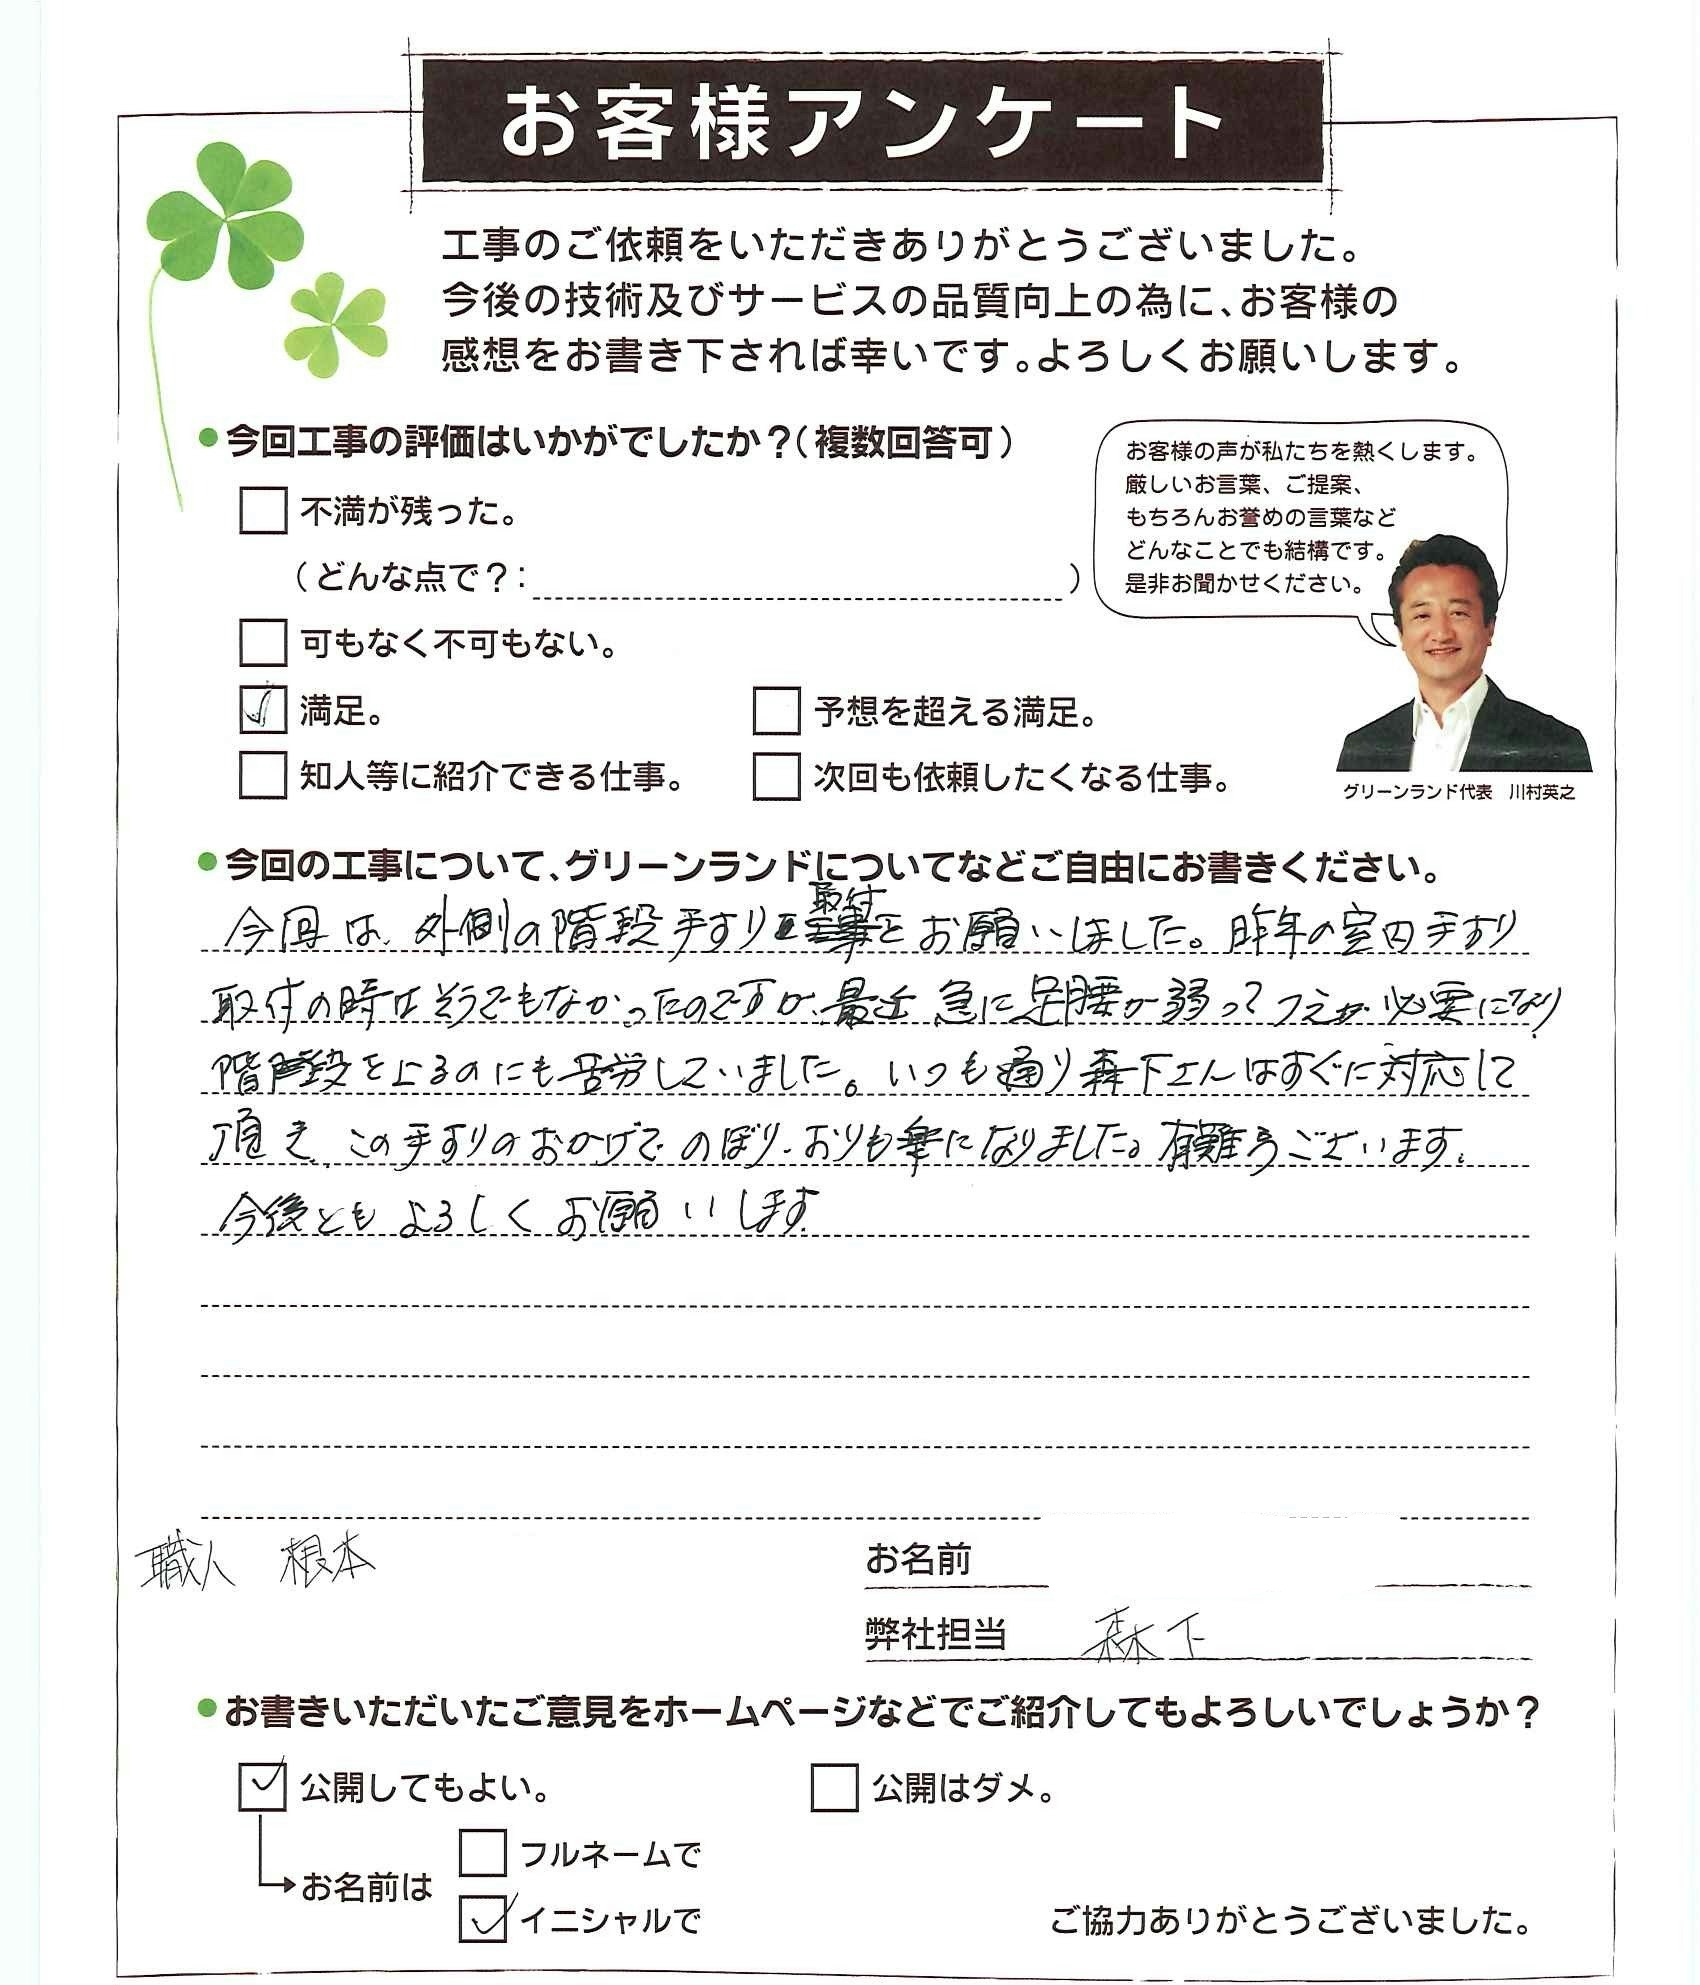 お客様アンケート
工事のご依頼をいただきありがとうございました。
今後の技術及びサービスの品質向上の為に、お客様の
感想をお書き下されば幸いです。よろしくお願いします。
●今回工事の評価はいかがでしたか？（複数回答可）
不満が残った。
（どんな点で？：　）
可もなく不可もない。
満足。
予想を超える満足。
知人等に紹介できる仕事。
次回も依頼したくなる仕事。
お客様の声が私たちを熱くします。
厳しいお言葉、ご提案、
もちろんお誉めの言葉など
どんなことでも結構です。
是非お聞かせください。
グリーンランド代表　川村英之
●今回の工事について、グリーンランドについてなどご自由にお書きください。
今回は、外側の階段手すり取付をお願いしました。昨年の室内手すり
取付の時はそうでもなかったのですが、最近急に足腰が弱ってつえが必要になり
階段を上るのにも苦労していました。いつも通り森下さんはすぐに対応して
頂き、この手すりのおかげでのぼり、おりも楽になりました。有難うございます。
今後ともよろしくお願いします
職人　根本
お名前
弊社担当　森下
●お書きいただいたご意見をホームページなどでご紹介してもよろしいでしょうか？
公開してもよい。
公開はダメ。
お名前は
フルネームで
イニシャルで
ご協力ありがとうございました。